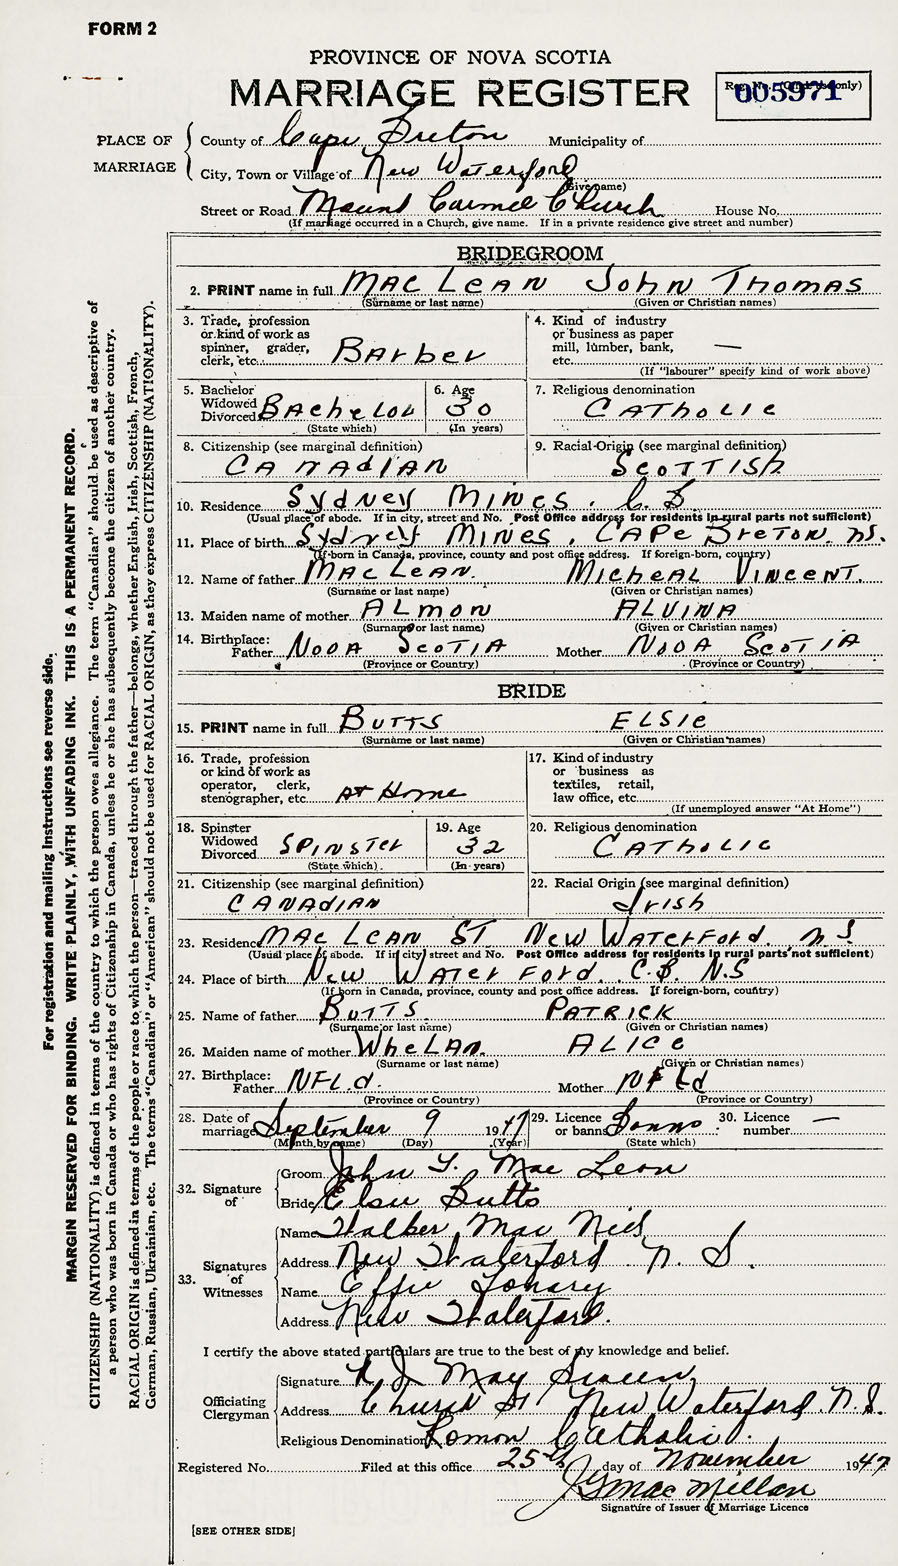 FORM 2
PROVINCE OF NOVA SCOTIA
MARRIAGE REGISTER
Reg. No. (Office use only)
005971
PLACE OF MARRIAGE
County of Cape Breton Municipality of
City, Town or Village of New Waterford
(Give name)
Street or Road Mount Carmel Church House No.
(If marriage occurred in a Church, give name. If in a private residence give street and number)
BRIDEGROOM
2. PRINT name in full MAC LEAN JOHN THOMAS
(Surname or last name) (Given or Christian names)
3. Trade, profession or kind of work as spinner, grader, clerk, etc. BArber
4. Kind of industry or business as paper mill, lumber, bank, etc. —
(If "labourer" specify kind of work above)
5. Bachelor Widowed Divorced BAchelor
(State which)
6. Age 30
(In years)
7. Religious denomination CATholic
8. Citizenship (see marginal definition) CANADIAN
9. Racial Origin (see marginal definition) SCOTTISh
10. Residence Sydney MINES. C.B
(Usual place of abode. If in city, street and No. Post Office address for residents in rural parts not sufficient)
11. Place of birth Sydney MINES, CAPe BreTON. NS.
(If born in Canada, province, county and post office address. If foreign-born, country)
12. Name of father MAC LeAN. MIcheAL VINCENT.
(Surname or last name) (Given or Christian names)
13. Maiden name of mother ALMON ALVINA
(Surname or last name) (Given or Christian names)
14. Birthplace: Father NOVA SCOTIA Mother NOVA SCOTIA
(Province or Country) (Province or Country)
BRIDE
15. PRINT name in full BUTTS ELSIe
(Surname or last name) (Given or Christian names)
16. Trade, profession or kind of work as operator, clerk, stenographer, etc. AT Home
17. Kind of industry or business as textiles, retail, law office, etc.
(If unemployed answer "At Home")
18. Spinster Widowed Divorced SPINSTer
(State which)
19. Age 32
(In years)
20. Religious denomination CATholic
21. Citizenship (see marginal definition) CANADIAN
22. Racial Origin (see marginal definition) Irish
23. Residence MAC LEAN ST New WATerFord. N.S.
(Usual place of abode. If in city street and No. Post Office address for residents in rural parts not sufficient)
24. Place of birth New WATer Ford. C.B. N.S
(If born in Canada, province, county and post office address. If foreign-born, country)
25. Name of father BUTTS. PATRICK
(Surname or last name) (Given or Christian names)
26. Maiden name of mother WheLAN. ALICe
(Surname or last name) (Given or Christian names)
27. Birthplace: Father NFLd. Mother NFLd
(Province or Country) (Province or Country)
28. Date of marriage September 9 1947
(Month by name) (Day) (Year)
29. Licence or banns Banns
(State which)
30. Licence number —
32. Signature of
Groom John T. Mac Lean
Bride Elsie Butts
33. Signatures of Witnesses
Name Walker Mac Neil
Address New Waterford N S.
Name Effie
Address New Waterford.
I certify the above stated particulars are true to the best of my knowledge and belief.
Officiating Clergyman
Signature
Address Church St New Waterford N.S.
Religious Denomination Roman Catholic.
Registered No. Filed at this office 25th day of November 1947
J G Mac Millan
Signature of Issuer of Marriage Licence
[SEE OTHER SIDE]
For registration and mailing instructions see reverse side.
MARGIN RESERVED FOR BINDING. WRITE PLAINLY, WITH UNFADING INK. THIS IS A PERMANENT RECORD.
CITIZENSHIP (NATIONALITY) is defined in terms of the country to which the person owes allegiance. The term "Canadian" should be used as descriptive of
a person who was born in Canada or who has rights of Citizenship in Canada, unless he or she has subsequently become the citizen of another country.
RACIAL ORIGIN is defined in terms of the people or race to which the person—traced through the father—belongs, whether English, Irish, Scottish, French,
German, Russian, Ukrainian, etc. The terms "Canadian" or "American" should not be used for RACIAL ORIGIN, as they express CITIZENSHIP (NATIONALITY).